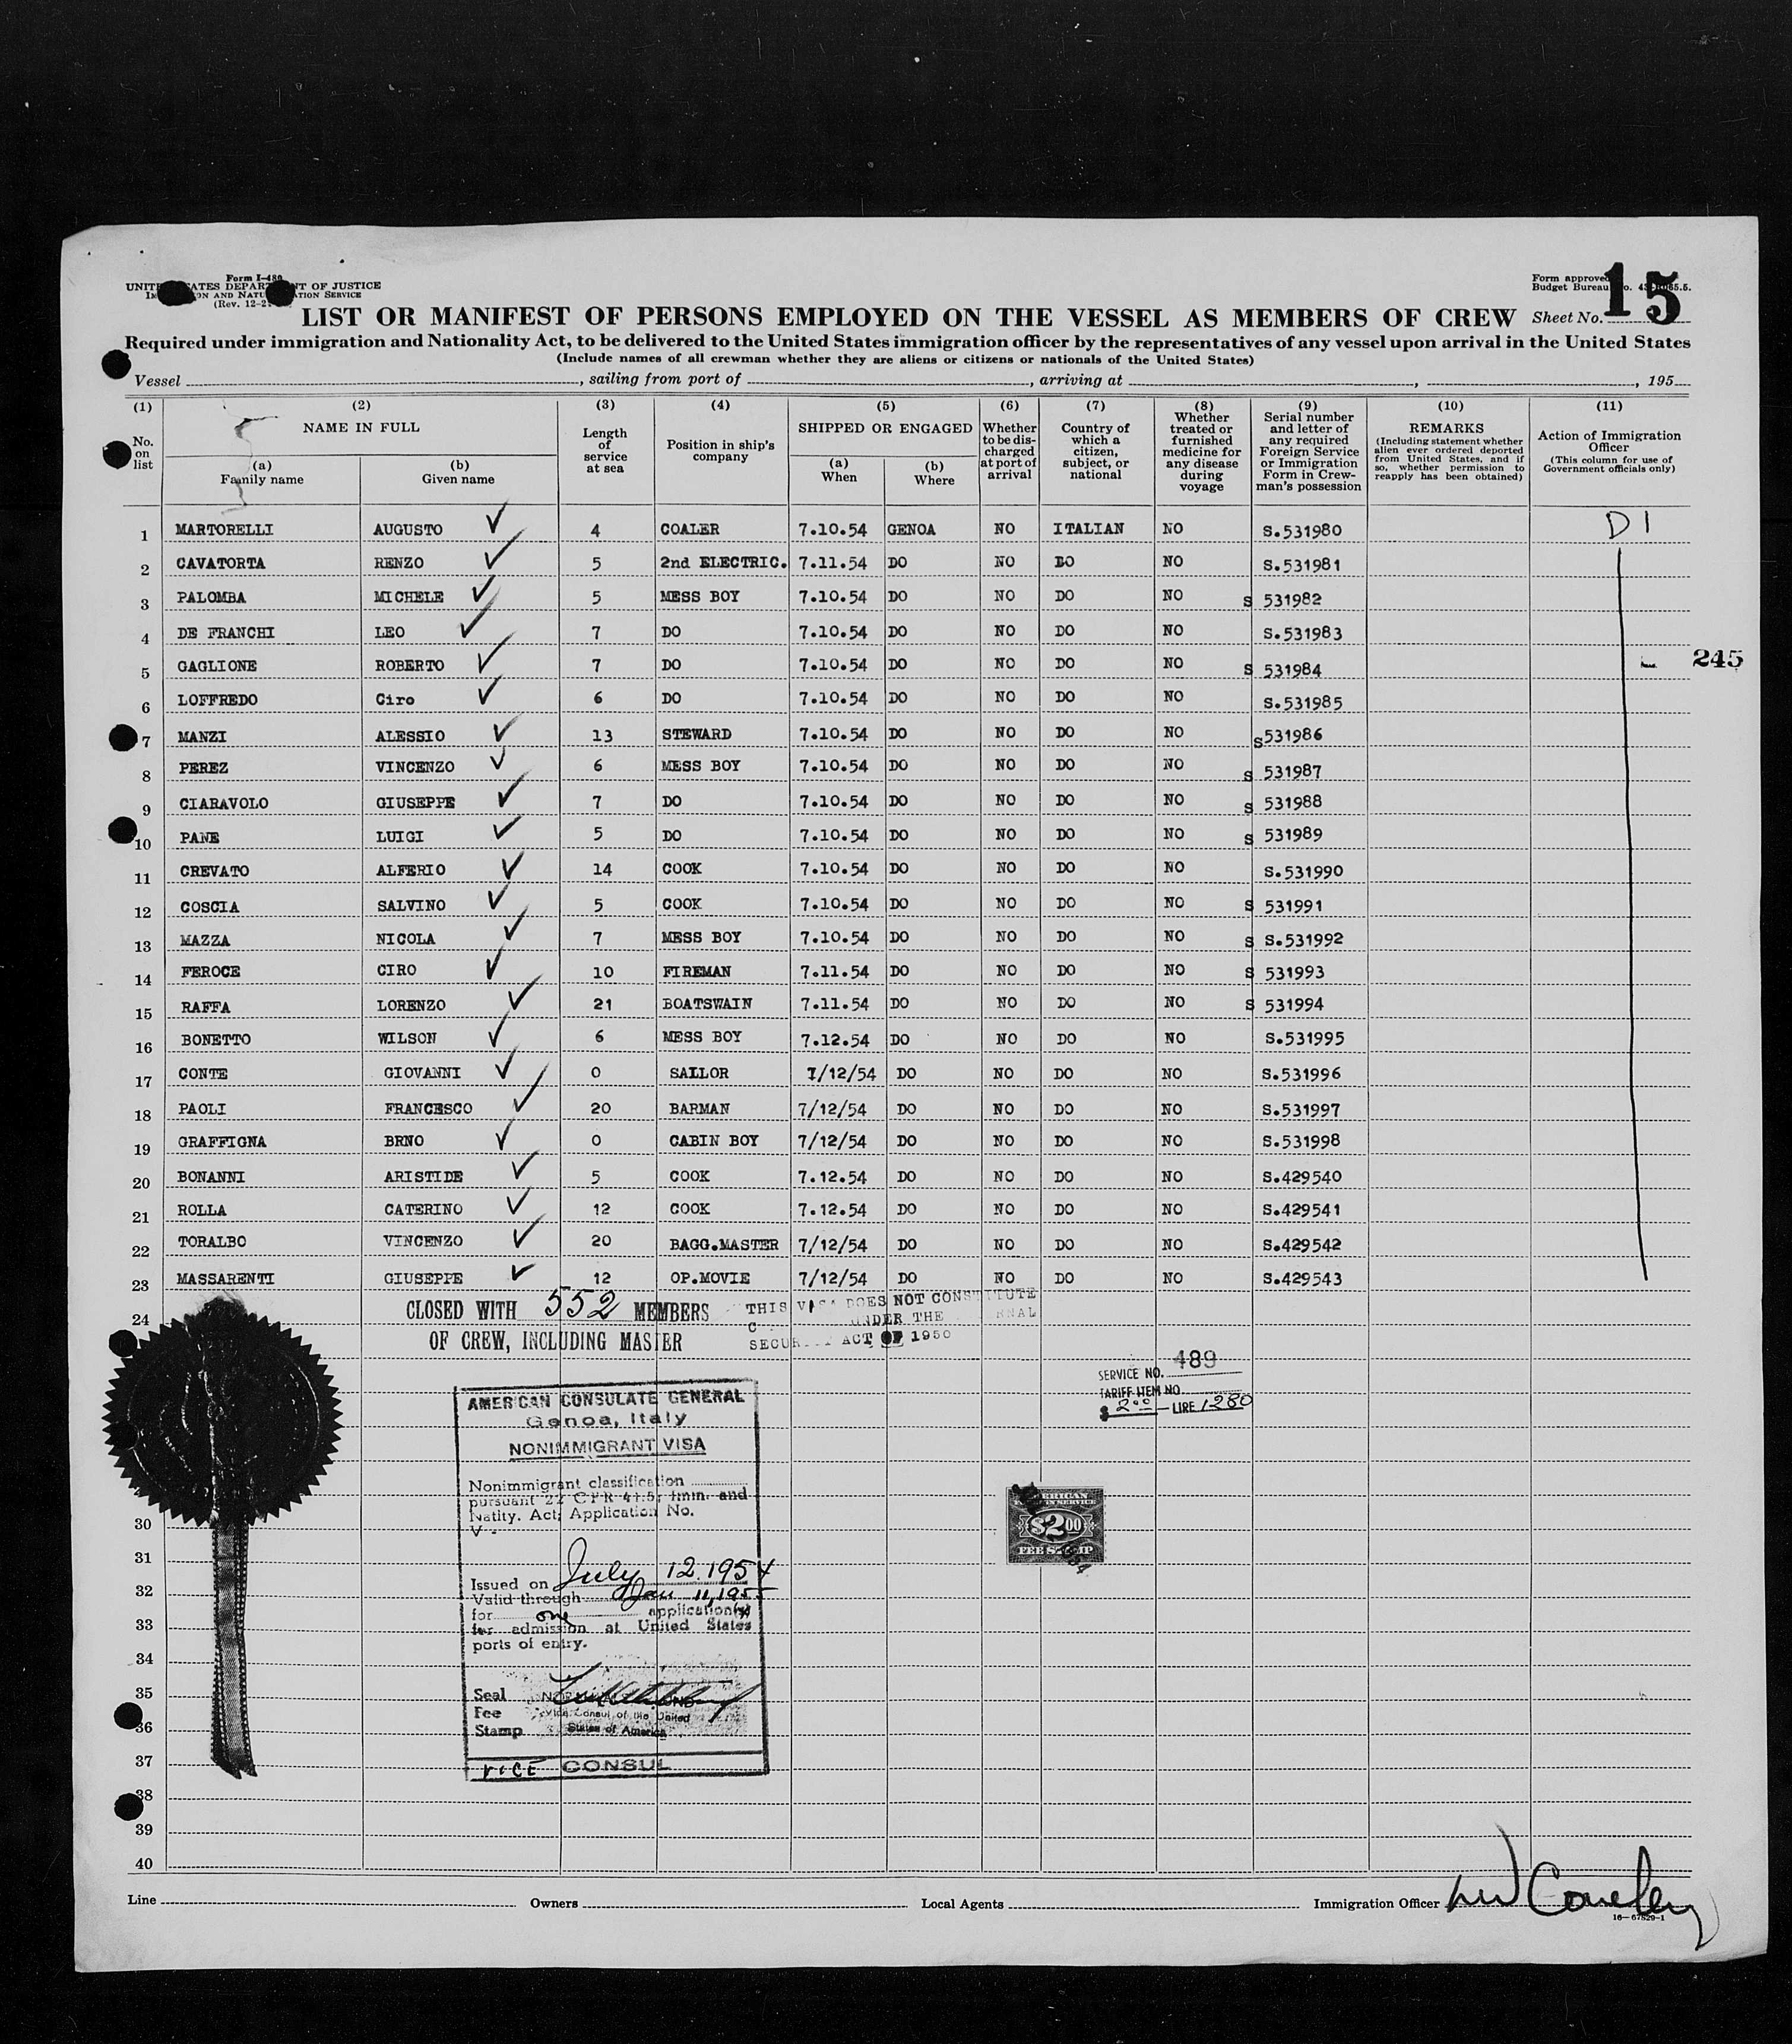 Form I-480
UNITED STATES DEPARTMENT OF JUSTICE
IMMIGRATION AND NATURALIZATION SERVICE
(Rev. 12-2
Form approved
Budget Bureau No. 43-R085.5.
LIST OR MANIFEST OF PERSONS EMPLOYED ON THE VESSEL AS MEMBERS OF CREW
Sheet No. 15
Required under immigration and Nationality Act, to be delivered to the United States immigration officer by the representatives of any vessel upon arrival in the United States
(Include names of all crewman whether they are aliens or citizens or nationals of the United States)
Vessel , sailing from port of , arriving at , , 195
(1) No. on list
(2) NAME IN FULL
(a) Family name
(b) Given name
(3) Length of service at sea
(4) Position in ship's company
(5) SHIPPED OR ENGAGED
(a) When
(b) Where
(6) Whether to be discharged at port of arrival
(7) Country of which a citizen, subject, or national
(8) Whether treated or furnished medicine for any disease during voyage
(9) Serial number and letter of any required Foreign Service or Immigration Form in Crewman's possession
(10) REMARKS (Including statement whether alien ever ordered deported from United States, and if so, whether permission to reapply has been obtained)
(11) Action of Immigration Officer (This column for use of Government officials only)
1 MARTORELLI AUGUSTO 4 COALER 7.10.54 GENOA NO ITALIAN NO S.531980 D 1
2 CAVATORTA RENZO 5 2nd ELECTRIC. 7.11.54 DO NO DO NO S.531981
3 PALOMBA MICHELE 5 MESS BOY 7.10.54 DO NO DO NO S 531982
4 DE FRANCHI LEO 7 DO 7.10.54 DO NO DO NO S.531983
5 GAGLIONE ROBERTO 7 DO 7.10.54 DO NO DO NO S 531984 245
6 LOFFREDO Ciro 6 DO 7.10.54 DO NO DO NO S.531985
7 MANZI ALESSIO 13 STEWARD 7.10.54 DO NO DO NO S531986
8 PEREZ VINCENZO 6 MESS BOY 7.10.54 DO NO DO NO S 531987
9 CIARAVOLO GIUSEPPE 7 DO 7.10.54 DO NO DO NO S 531988
10 PANE LUIGI 5 DO 7.10.54 DO NO DO NO S 531989
11 CREVATO ALFERIO 14 COOK 7.10.54 DO NO DO NO S.531990
12 COSCIA SALVINO 5 COOK 7.10.54 DO NO DO NO S 531991
13 MAZZA NICOLA 7 MESS BOY 7.10.54 DO NO DO NO S S.531992
14 FEROCE CIRO 10 FIREMAN 7.11.54 DO NO DO NO S 531993
15 RAFFA LORENZO 21 BOATSWAIN 7.11.54 DO NO DO NO S 531994
16 BONETTO WILSON 6 MESS BOY 7.12.54 DO NO DO NO S.531995
17 CONTE GIOVANNI 0 SAILOR 7/12/54 DO NO DO NO S.531996
18 PAOLI FRANCESCO 20 BARMAN 7/12/54 DO NO DO NO S.531997
19 GRAFFIGNA BRNO 0 CABIN BOY 7/12/54 DO NO DO NO S.531998
20 BONANNI ARISTIDE 5 COOK 7.12.54 DO NO DO NO S.429540
21 ROLLA CATERINO 12 COOK 7.12.54 DO NO DO NO S.429541
22 TORALBO VINCENZO 20 BAGG.MASTER 7/12/54 DO NO DO NO S.429542
23 MASSARENTI GIUSEPPE 12 OP.MOVIE 7/12/54 DO NO DO NO S.429543
24
CLOSED WITH 552 MEMBERS
OF CREW, INCLUDING MASTER
THIS VISA DOES NOT CONSTITUTE
UNDER THE
SECURITY ACT OF 1950
SERVICE NO. 489
TARIFF ITEM NO.
$ 2.00 LIRE 1280
AMERICAN CONSULATE GENERAL
Genoa, Italy
NONIMMIGRANT VISA
Nonimmigrant classification
pursuant 22 CFR 41.5; Imm. and
Natity. Act; Application No.
V -
Issued on July 12, 1954
Valid through Jan 11, 1955
for one application(s)
for admission at United States
ports of entry.
Seal
Fee
Stamp
Vice Consul of the United
States of America
VICE CONSUL
AMERICAN
FOREIGN SERVICE
$2.00
FEE STAMP
30
31
32
33
34
35
36
37
38
39
40
Line Owners Local Agents Immigration Officer
16—67829-1